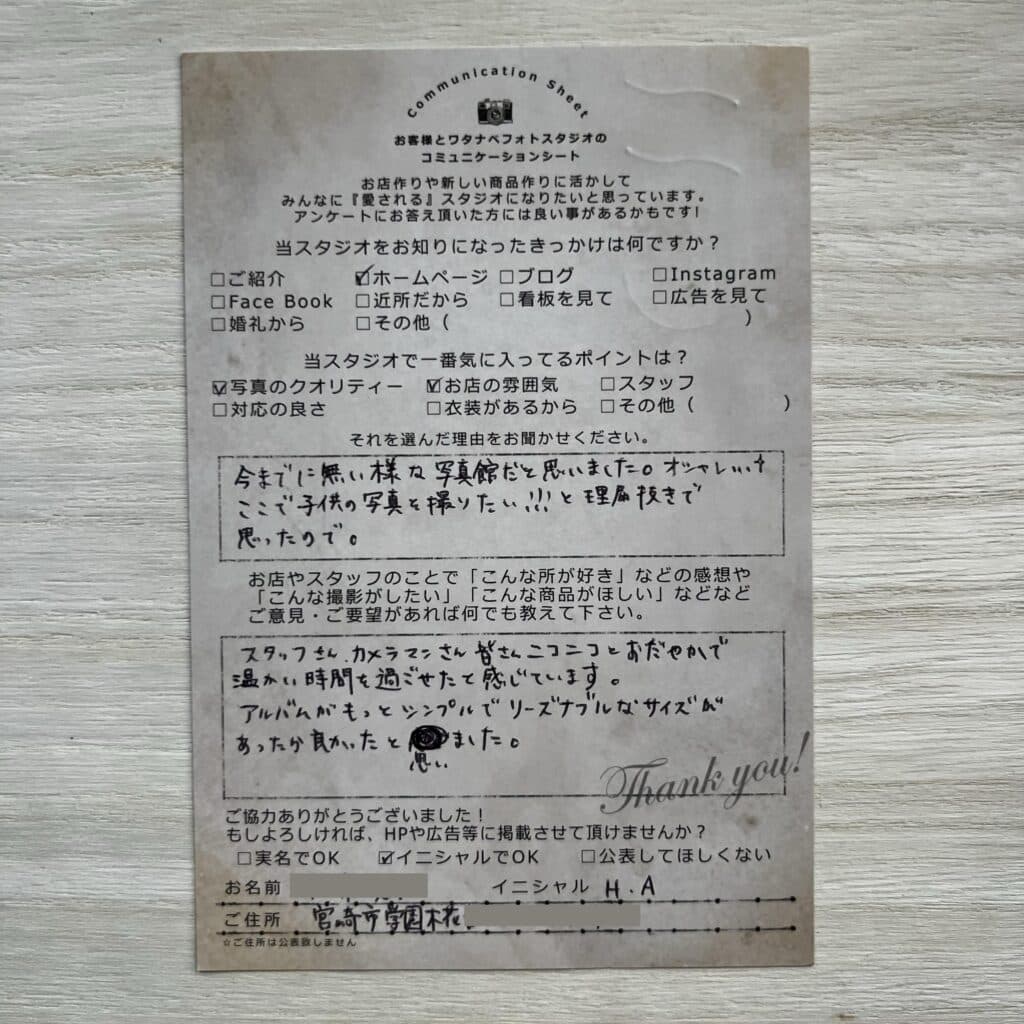 Communication Sheet
お客様とワタナベフォトスタジオの
コミュニケーションシート
お店作りや新しい商品作りに活かして
みんなに『愛される』スタジオになりたいと思っています。
アンケートにお答え頂いた方には良い事があるかもです!
当スタジオをお知りになったきっかけは何ですか？
□ご紹介 ☑ホームページ □ブログ □Instagram
□Face Book □近所だから □看板を見て □広告を見て
□婚礼から □その他（ ）
当スタジオで一番気に入ってるポイントは？
☑写真のクオリティー ☑お店の雰囲気 □スタッフ
□対応の良さ □衣装があるから □その他（ ）
それを選んだ理由をお聞かせください。
今までに無い様な写真館だと思いました。オシャレ
ここで子供の写真を撮りたい!!!と理屈抜きで
思ったので。
お店やスタッフのことで「こんな所が好き」などの感想や
「こんな撮影がしたい」「こんな商品がほしい」などなど
ご意見・ご要望があれば何でも教えて下さい。
スタッフさん、カメラマンさん皆さんニコニコとおだやかで
温かい時間を過ごせたと感じています。
アルバムがもっとシンプルでリーズナブルなサイズが
あったら良かったと ました。
思い
Thank you!
ご協力ありがとうございました！
もしよろしければ、HPや広告等に掲載させて頂けませんか？
□実名でOK ☑イニシャルでOK □公表してほしくない
お名前 イニシャル H.A
ご住所 宮崎市学園木花
☆ご住所は公表致しません